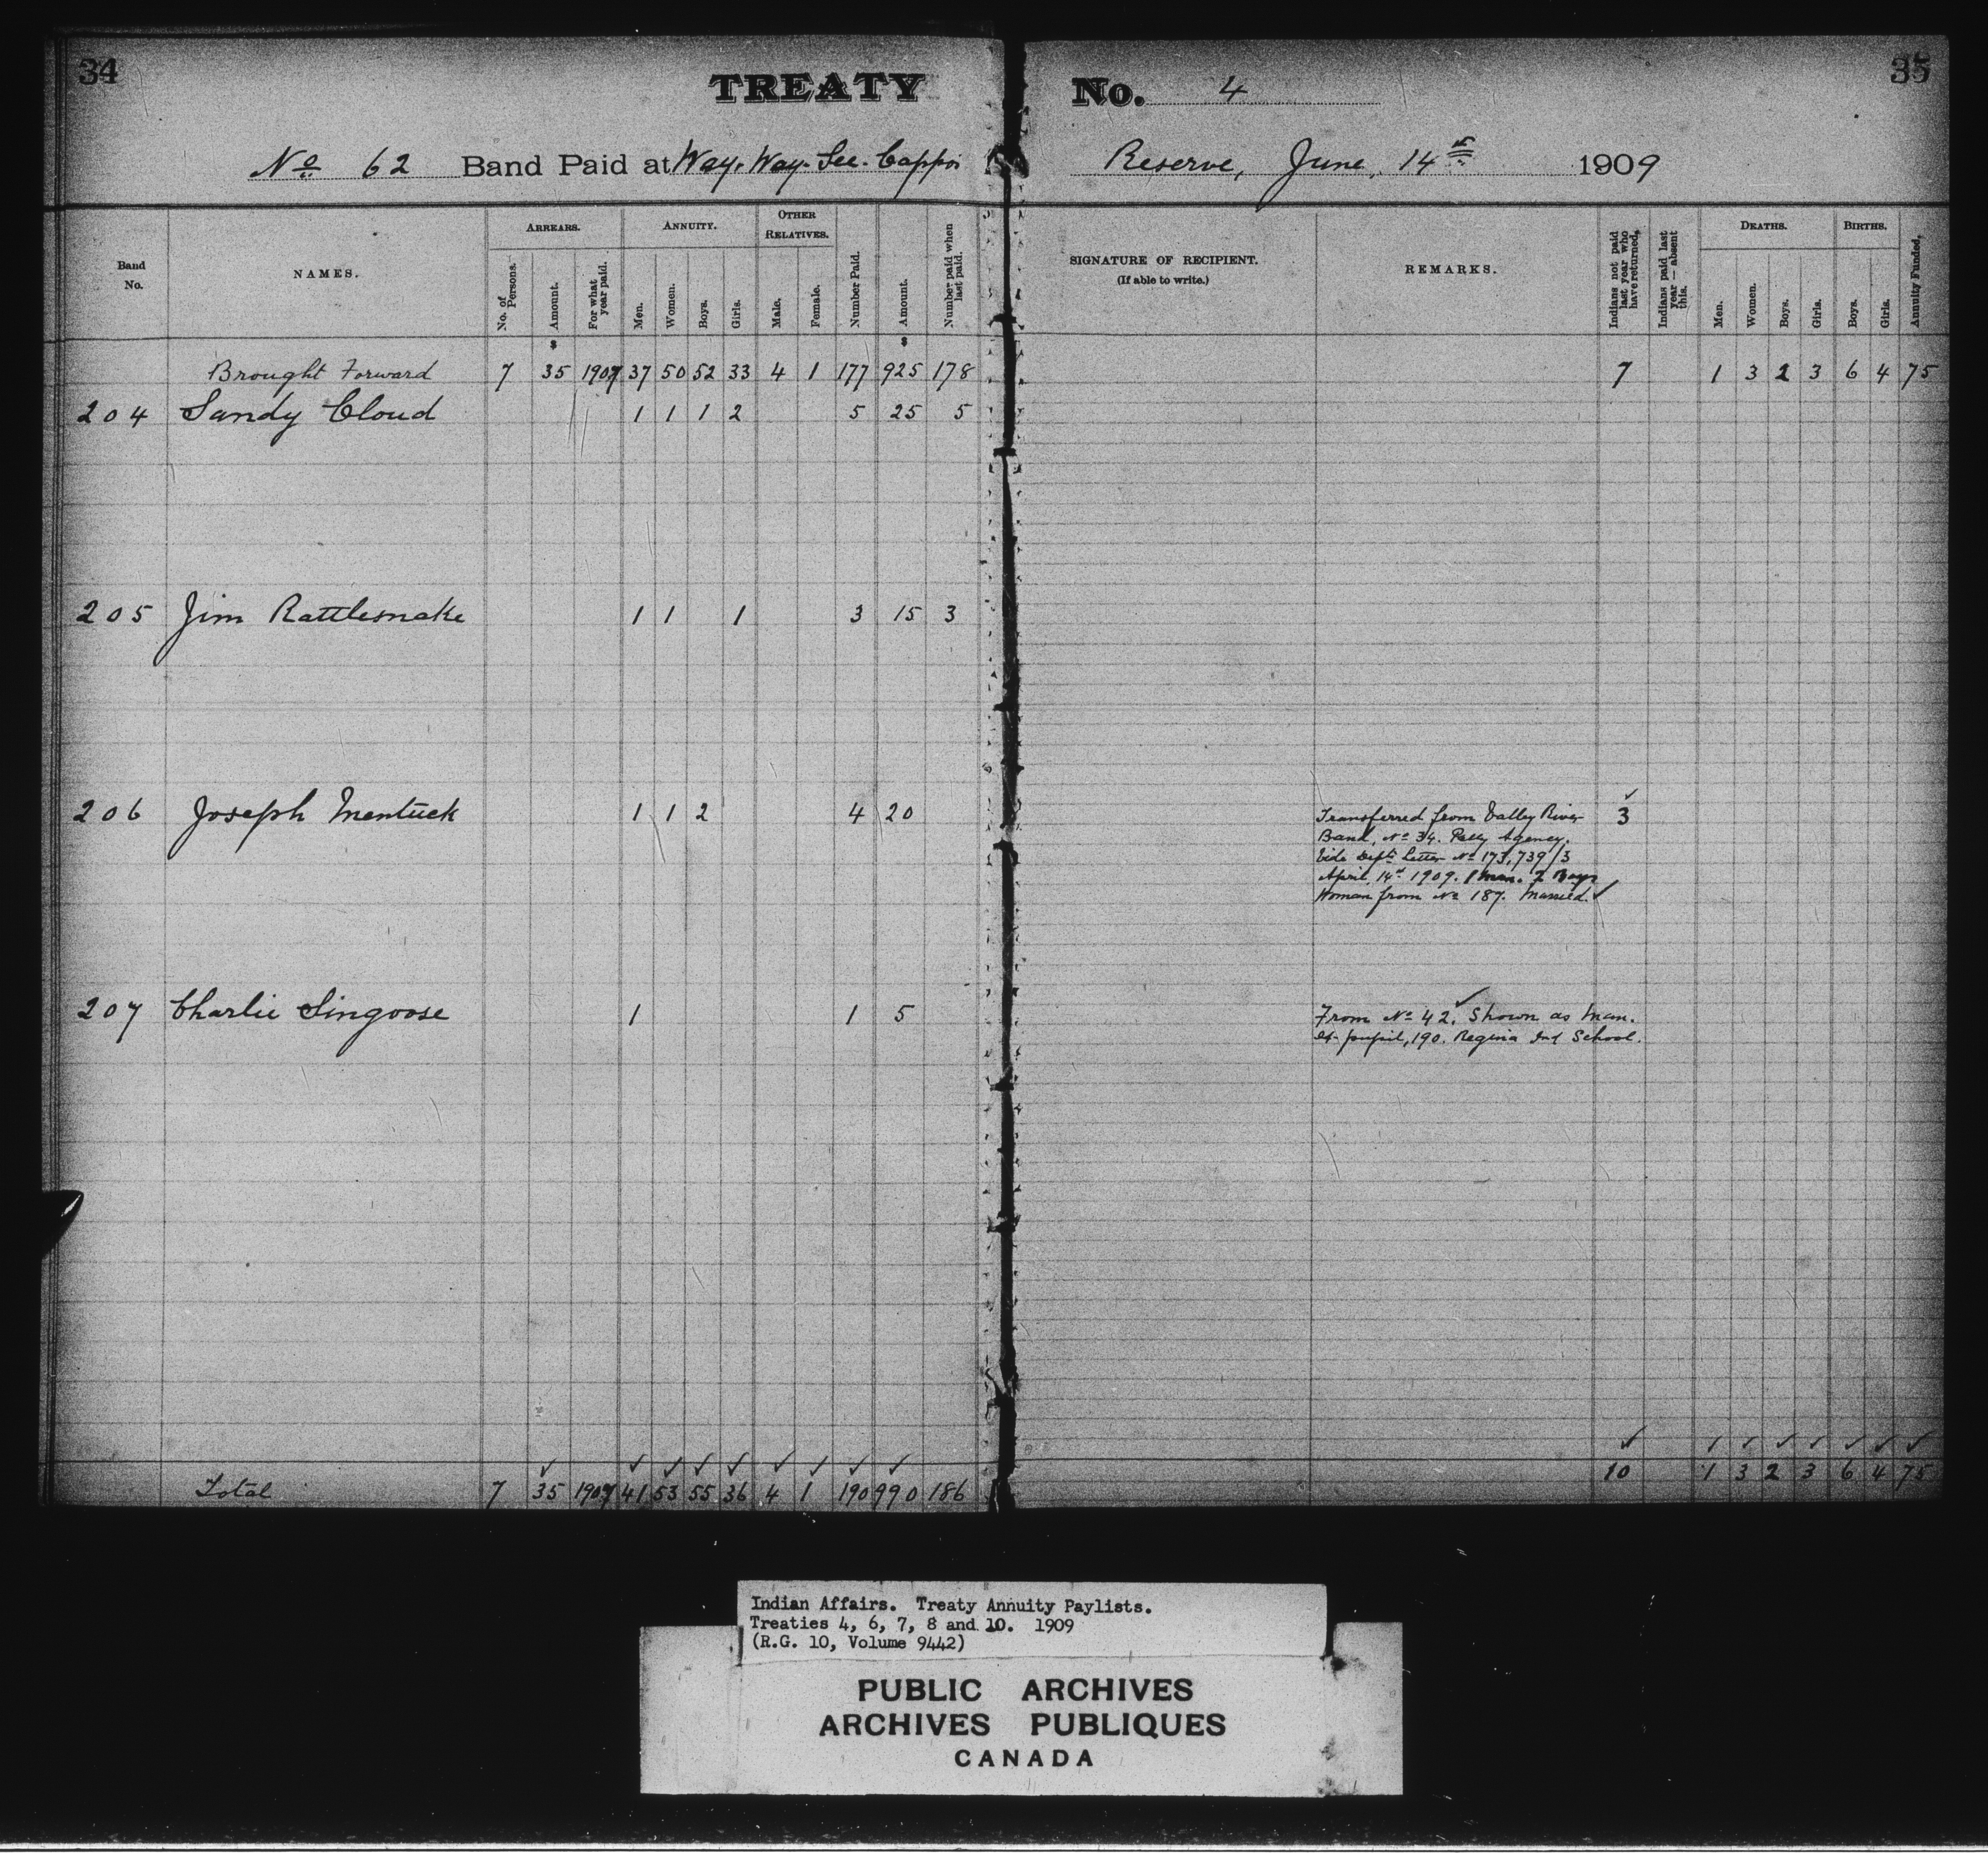 34
TREATY No. 4
35
No 62 Band Paid at Way. Way. See. Cappoi Reserve, June, 14th 1909
Band No.
NAMES.
ARREARS.
No. of Persons.
Amount.
For what year paid.
ANNUITY.
Men.
Women.
Boys.
Girls.
OTHER RELATIVES.
Male.
Female.
Number Paid.
Amount.
Number paid when last paid.
SIGNATURE OF RECIPIENT.
(If able to write.)
REMARKS.
Indians not paid last year who have returned.
Indians paid last year — absent this.
DEATHS.
Men.
Women.
Boys.
Girls.
BIRTHS.
Boys.
Girls.
Annuity Funded.
$ $
Brought Forward 7 35 1907 37 50 52 33 4 1 177 925 178 7 1 3 2 3 6 4 75
204 Sandy Cloud 1 1 1 2 5 25 5
205 Jim Rattlesnake 1 1 1 3 15 3
206 Joseph Mentuck 1 1 2 4 20 3
Transferred from Valley River
Band, No 34. Pelly Agency,
Vide Dept Letter No 173,739/3
April, 14th 1909. 1 Man. 2 Boys
Woman from No 187. Married.
207 Charlie Singoose 1 1 5
From No 42. Shown as Man.
ex-pupil, 190. Regina Ind School.
Total 7 35 1907 41 53 55 36 4 1 190 990 186 10 1 3 2 3 6 4 75
Indian Affairs. Treaty Annuity Paylists.
Treaties 4, 6, 7, 8 and 10. 1909
(R.G. 10, Volume 9442)
PUBLIC ARCHIVES
ARCHIVES PUBLIQUES
CANADA